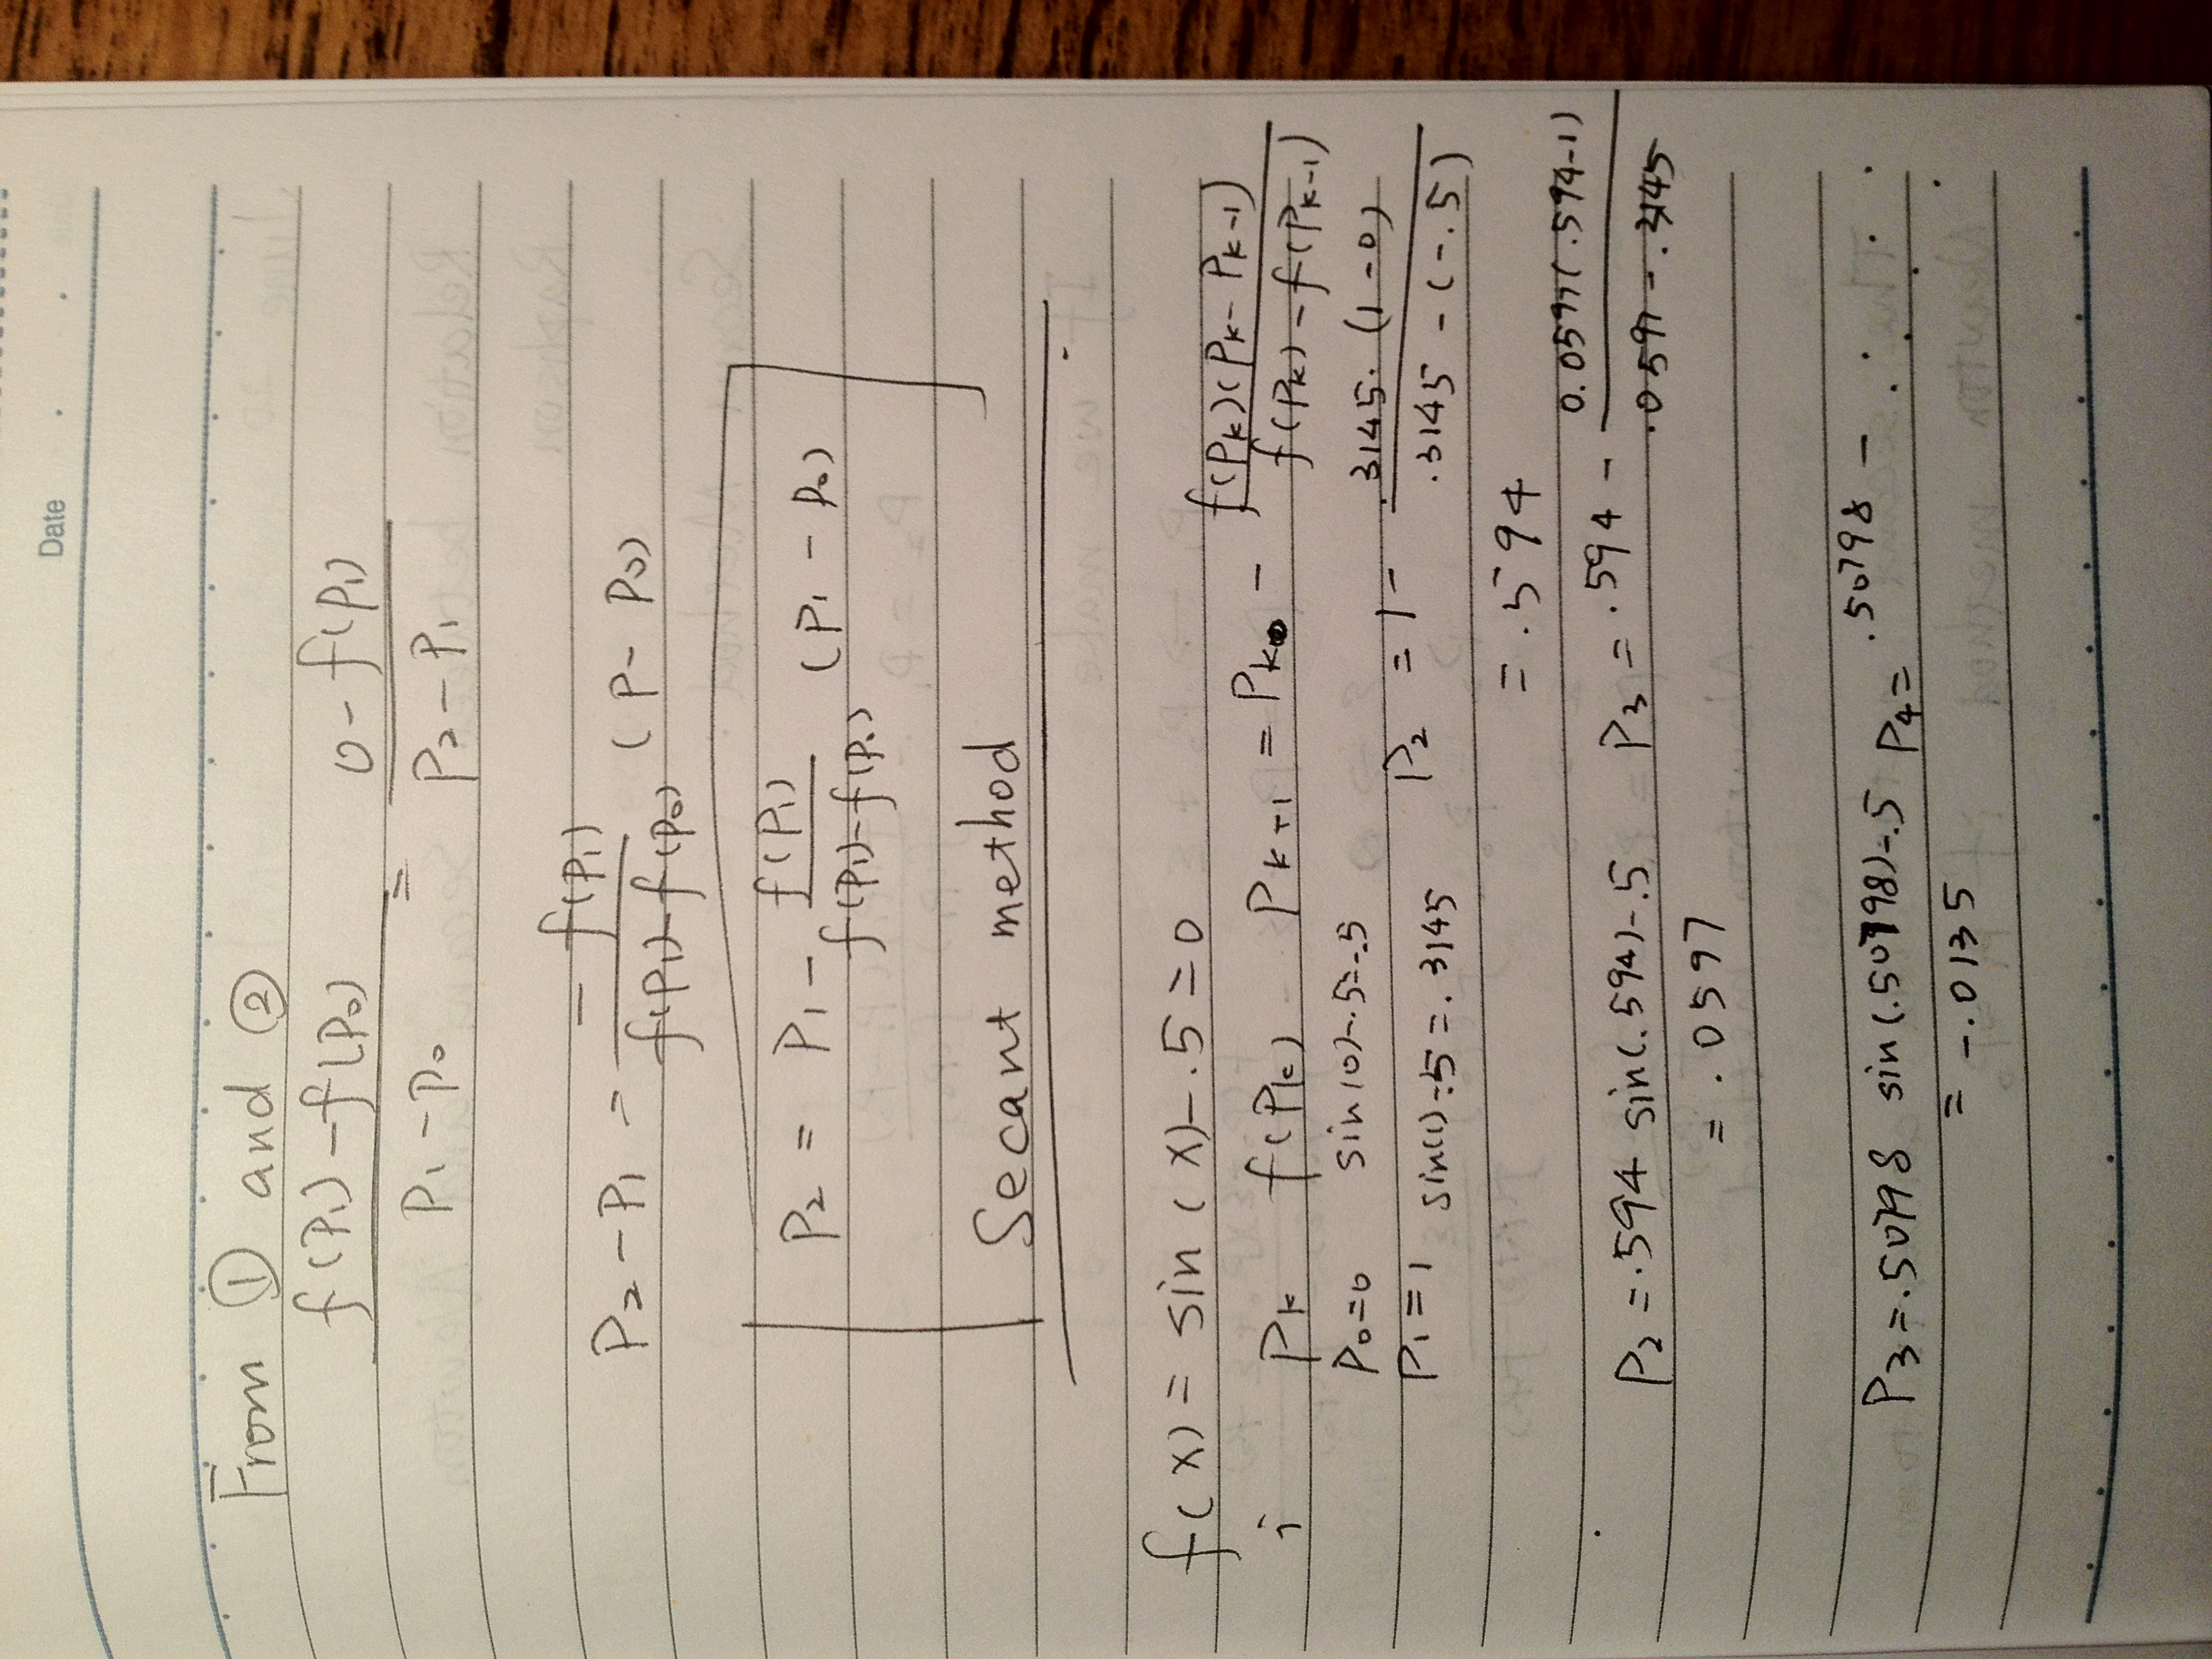 Date
From ① and ②
f(P₁) - f(P₀) / P₁ - P₀ = 0 - f(P₁) / P₂ - P₁
P₂ - P₁ = - f(P₁) / f(P₁) - f(P₀) (P - P₀)
P₂ = P₁ - f(P₁) / f(P₁) - f(P₀) (P₁ - P₀)
Secant method
f(x) = sin(x) - .5 = 0
i Pₖ f(Pₖ) Pₖ₊₁ = Pₖ - f(Pₖ)(Pₖ - Pₖ₋₁) / f(Pₖ) - f(Pₖ₋₁)
P₀=0 sin(0)-.5=-.5
P₁=1 sin(1)-.5=.3145 P₂ = 1 - .3145.(1-0) / .3145 - (-.5)
= .594
P₂=.594 sin(.594)-.5 P₃=.594 - 0.0597(.594-1) / .0597-.3145
= .0597
P₃=.5098 sin(.5098)-.5 P₄= .5098 - . . . .
= -.0135